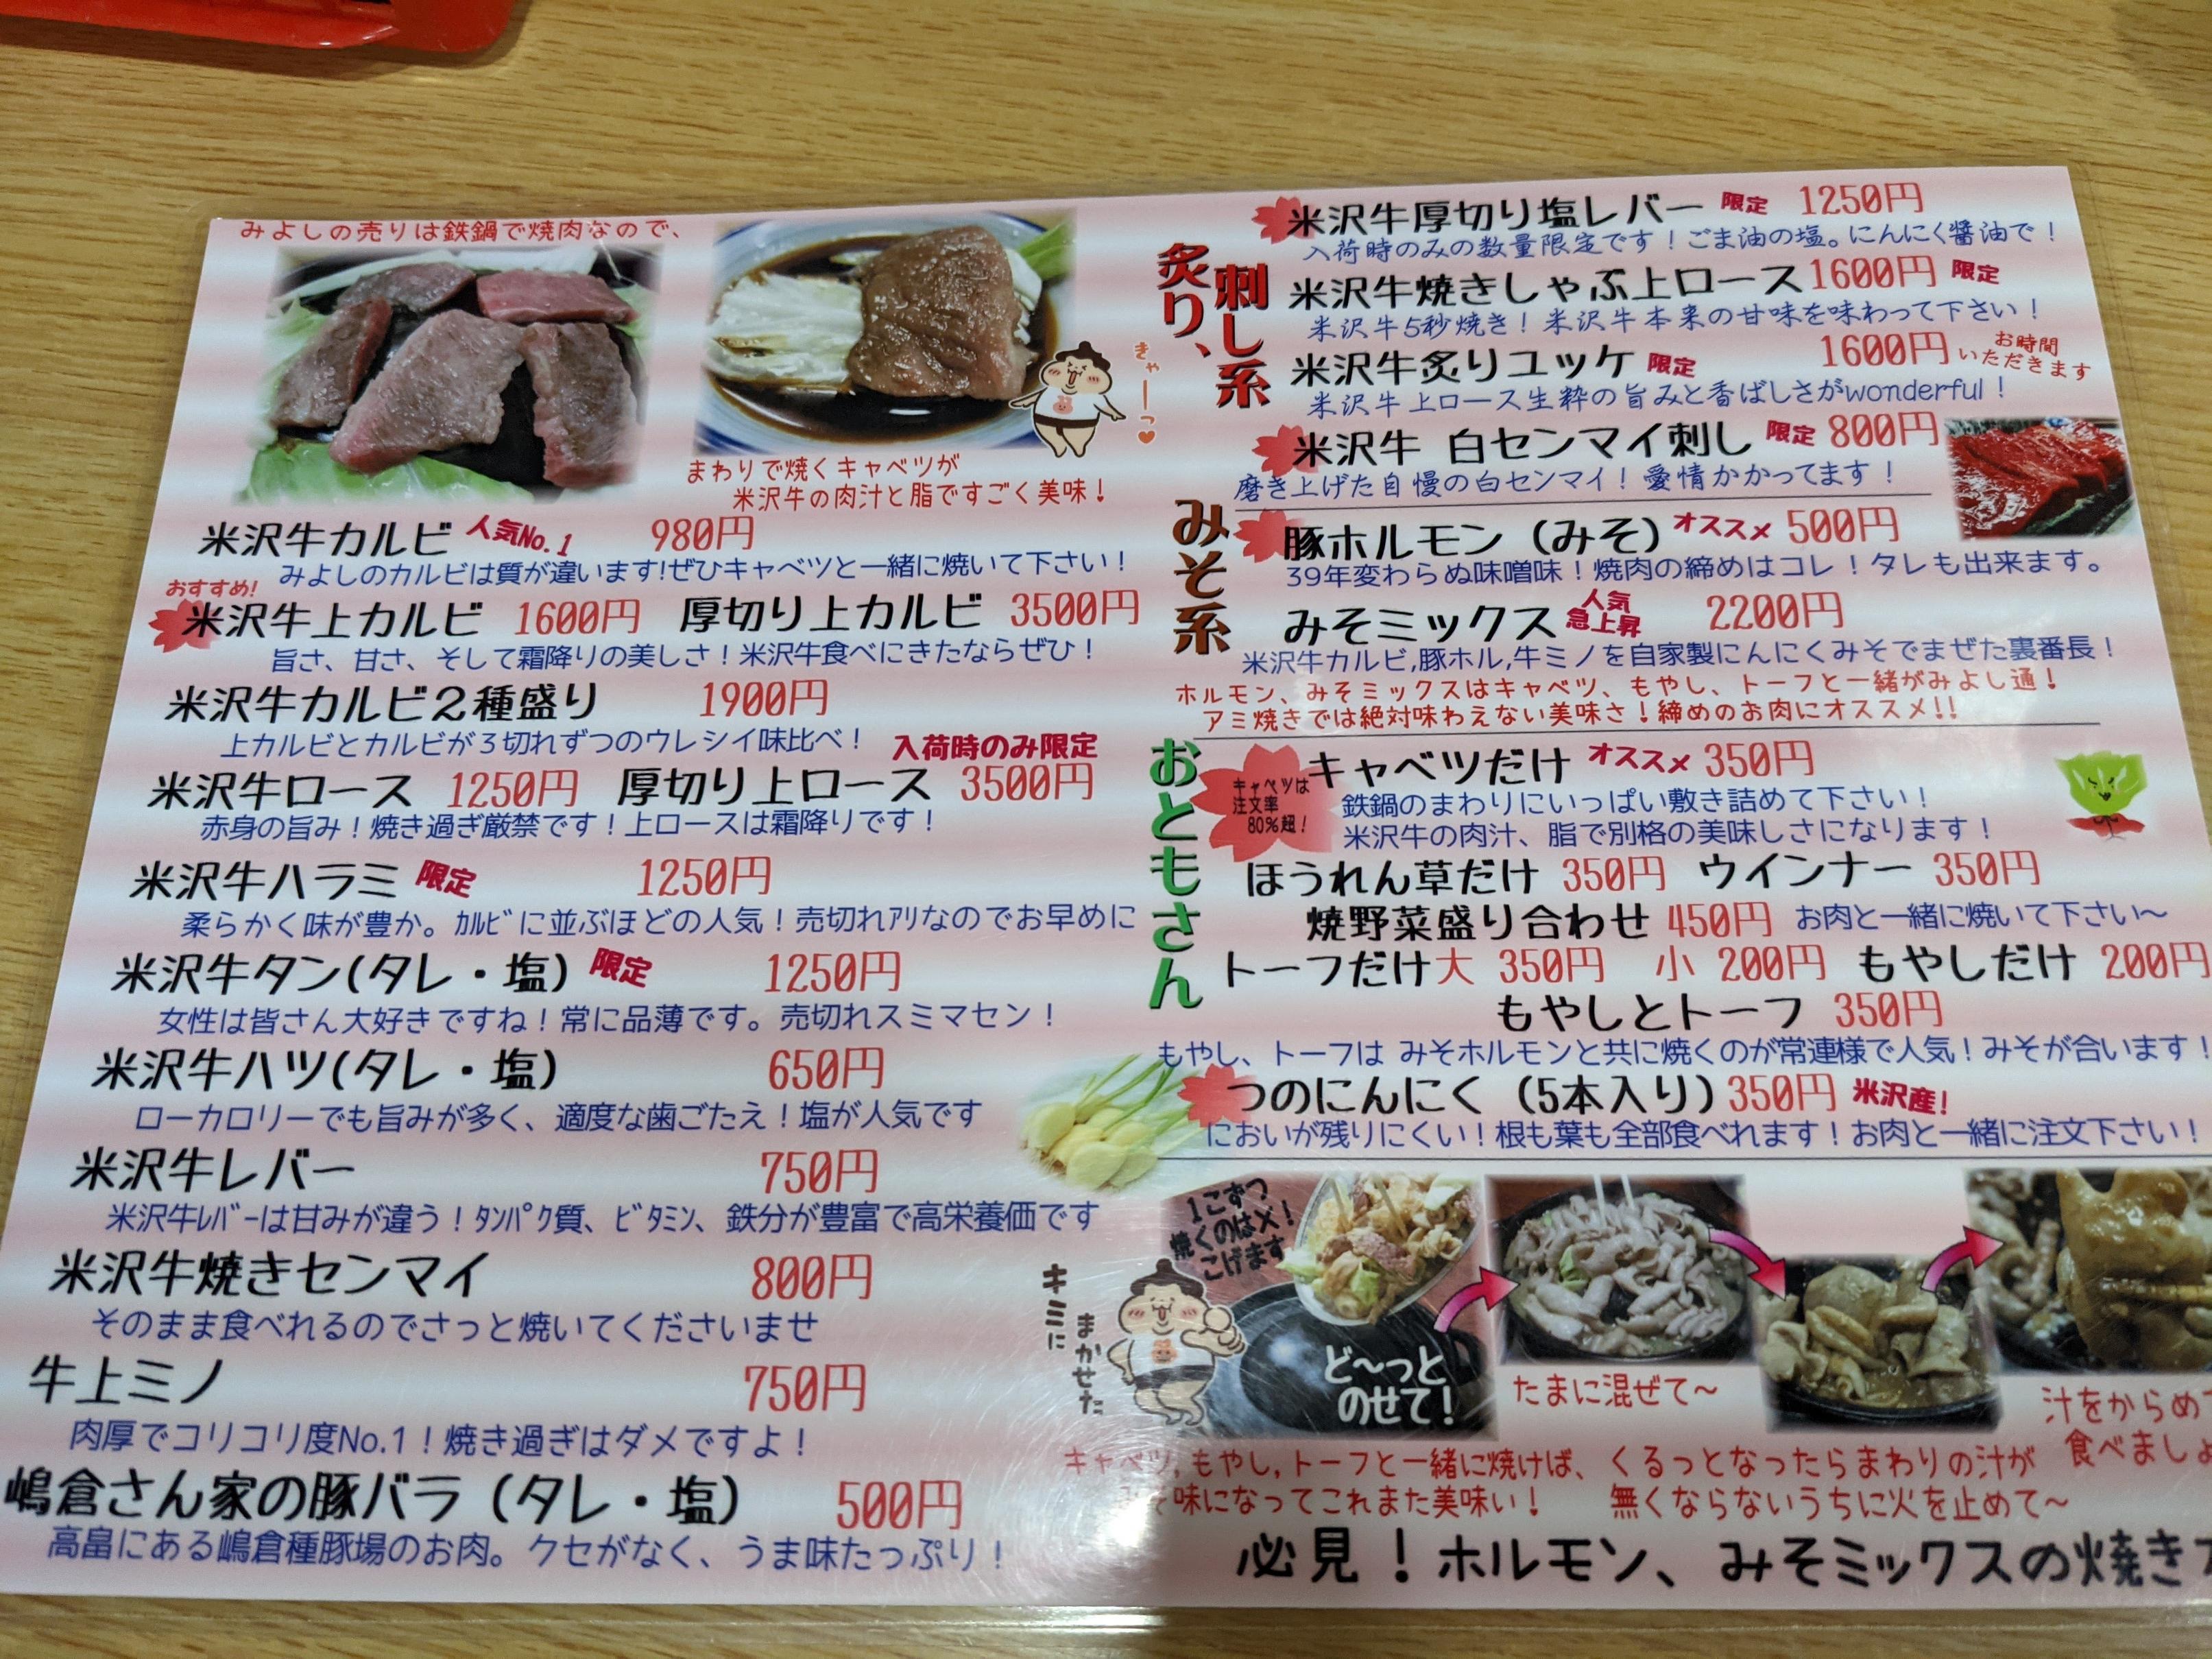 みよしの売りは鉄鍋で焼肉なので、
まわりで焼くキャベツが
米沢牛の肉汁と脂ですごく美味！
きゃーっ♥
米沢牛カルビ 人気No.1 980円
みよしのカルビは質が違います!ぜひキャベツと一緒に焼いて下さい！
おすすめ!
米沢牛上カルビ 1600円 厚切り上カルビ 3500円
旨さ、甘さ、そして霜降りの美しさ！米沢牛食べにきたならぜひ！
米沢牛カルビ２種盛り 1900円
上カルビとカルビが３切れずつのウレシイ味比べ！
入荷時のみ限定
米沢牛ロース 1250円 厚切り上ロース 3500円
赤身の旨み！焼き過ぎ厳禁です！上ロースは霜降りです！
米沢牛ハラミ 限定 1250円
柔らかく味が豊か。ｶﾙﾋﾞに並ぶほどの人気！売切れｱﾘなのでお早めに
米沢牛タン(タレ・塩) 限定 1250円
女性は皆さん大好きですね！常に品薄です。売切れスミマセン！
米沢牛ハツ(タレ・塩) 650円
ローカロリーでも旨みが多く、適度な歯ごたえ！塩が人気です
米沢牛レバー 750円
米沢牛ﾚﾊﾞｰは甘みが違う！ﾀﾝﾊﾟｸ質、ﾋﾞﾀﾐﾝ、鉄分が豊富で高栄養価です
米沢牛焼きセンマイ 800円
そのまま食べれるのでさっと焼いてくださいませ
牛上ミノ 750円
肉厚でコリコリ度No.1！焼き過ぎはダメですよ！
嶋倉さん家の豚バラ（タレ・塩） 500円
高畠にある嶋倉種豚場のお肉。クセがなく、うま味たっぷり！
炙り、刺し系
米沢牛厚切り塩レバー 限定 1250円
入荷時のみの数量限定です！ごま油の塩。にんにく醬油で！
米沢牛焼きしゃぶ上ロース1600円 限定
米沢牛5秒焼き！米沢牛本来の甘味を味わって下さい！
米沢牛炙りユッケ 限定 1600円 お時間
いただきます
米沢牛上ロース生粋の旨みと香ばしさがwonderful！
米沢牛 白センマイ刺し 限定 800円
磨き上げた自慢の白センマイ！愛情かかってます！
みそ系
豚ホルモン（みそ）オススメ 500円
39年変わらぬ味噌味！焼肉の締めはコレ！タレも出来ます。
みそミックス 人気
急上昇 2200円
米沢牛カルビ,豚ホル,牛ミノを自家製にんにくみそでまぜた裏番長！
ホルモン、みそミックスはキャベツ、もやし、トーフと一緒がみよし通！
アミ焼きでは絶対味わえない美味さ！締めのお肉にオススメ!!
おともさん
キャベツは
注文率
80%超！
キャベツだけ オススメ 350円
鉄鍋のまわりにいっぱい敷き詰めて下さい！
米沢牛の肉汁、脂で別格の美味しさになります！
ほうれん草だけ 350円 ウインナー 350円
焼野菜盛り合わせ 450円 お肉と一緒に焼いて下さい～
トーフだけ大 350円 小 200円 もやしだけ 200円
もやしとトーフ 350円
もやし、トーフは みそホルモンと共に焼くのが常連様で人気！みそが合います！
つのにんにく（5本入り）350円 米沢産!
においが残りにくい！根も葉も全部食べれます！お肉と一緒に注文下さい！
キミに
まかせた
1こずつ
焼くのは×！
こげます
ど～っと
のせて！
たまに混ぜて～
汁をからめ
食べましょ
キャベツ,もやし,トーフと一緒に焼けば、
みそ味になってこれまた美味い！
くるっとなったらまわりの汁が
無くならないうちに火を止めて～
必見！ホルモン、みそミックスの焼き